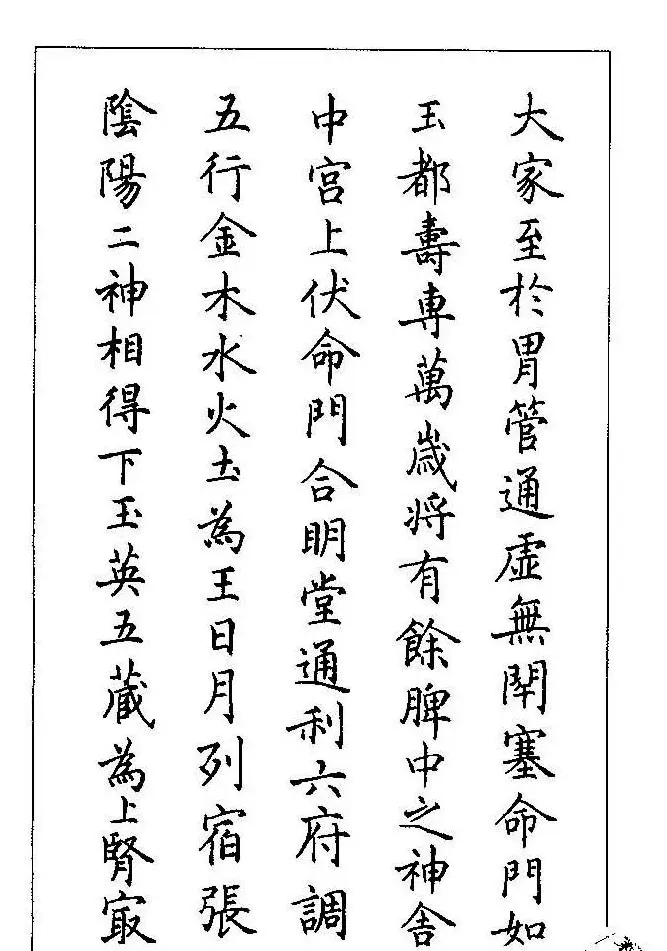 大家至於胃管通虛無閉塞命門如
玉都壽專萬歲將有餘脾中之神舍
中宮上伏命門合明堂通利六府調
五行金木水火土為王日月列宿張
陰陽二神相得下玉英五藏為上腎㝡